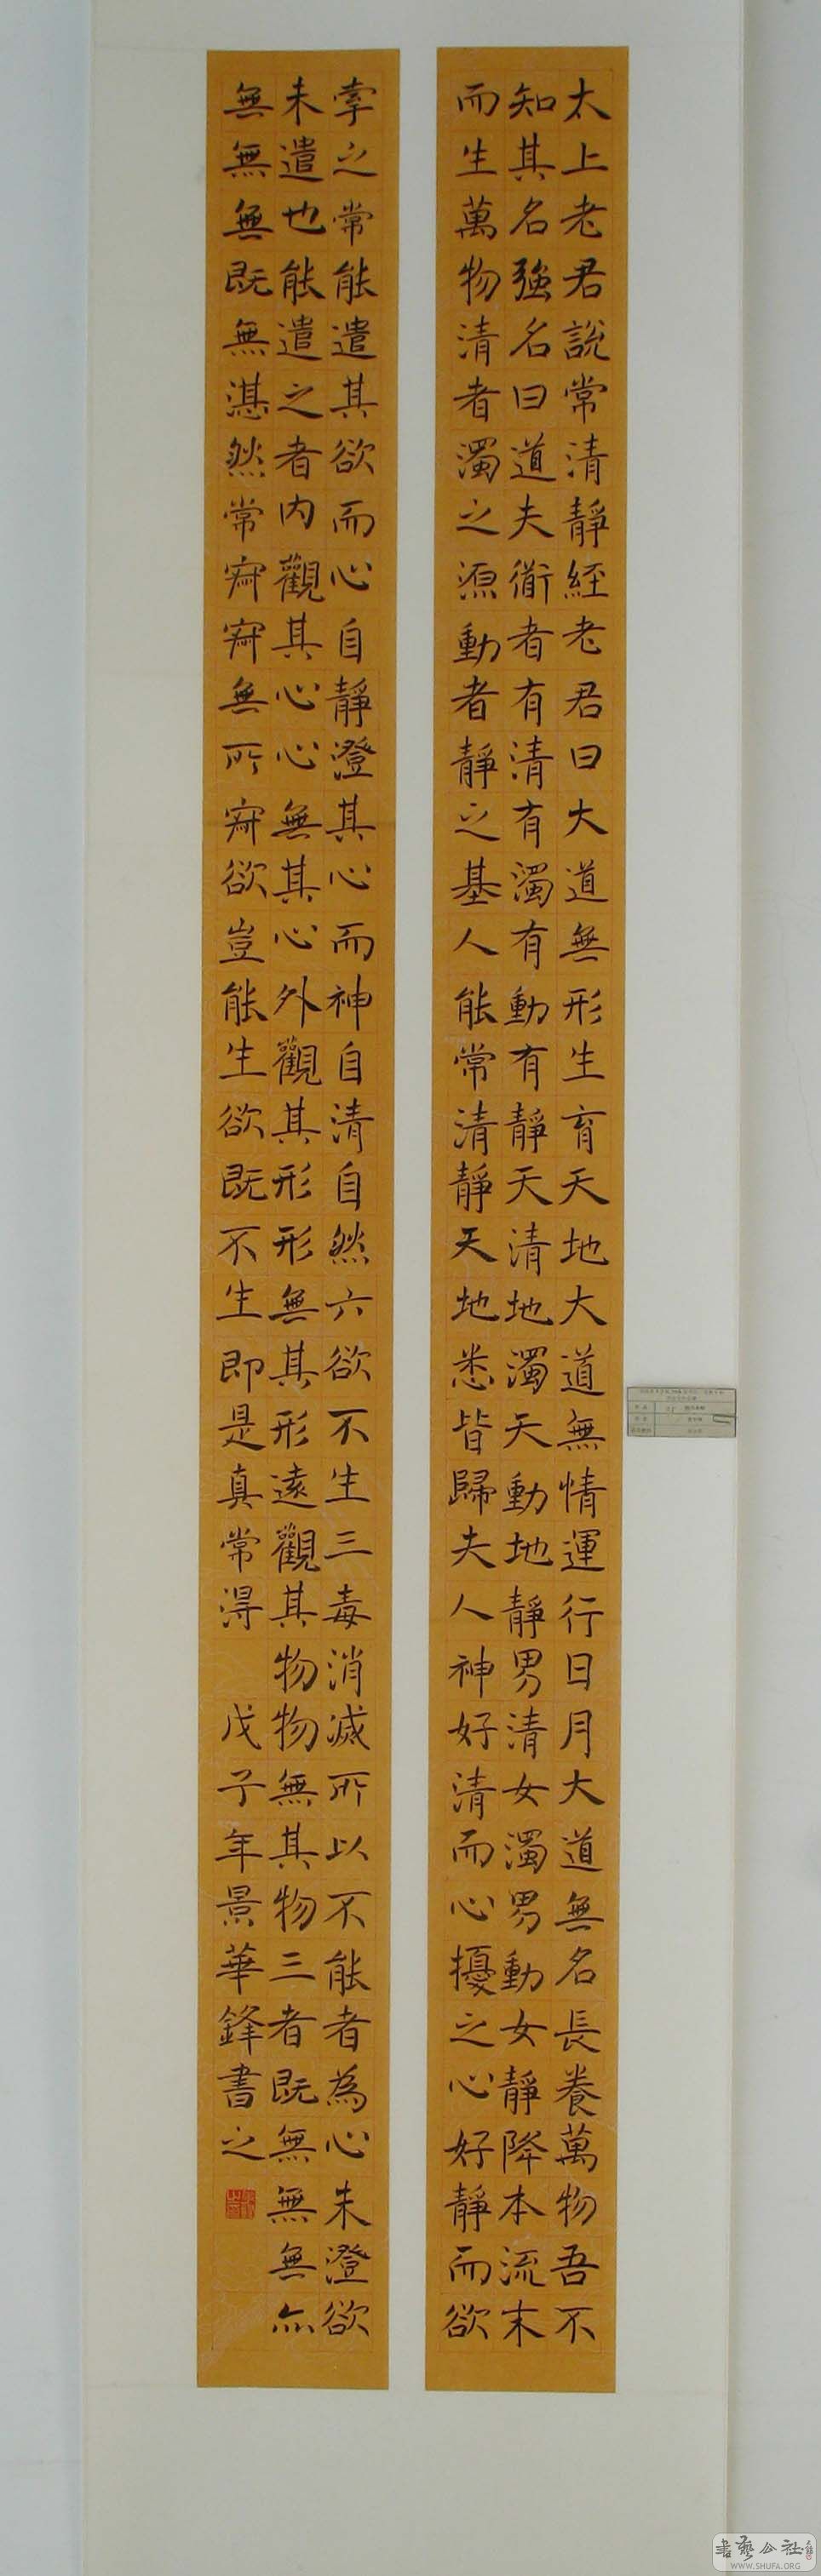 太上老君說常清靜經老君曰大道無形生育天地大道無情運行日月大道無名長養萬物吾不
知其名強名曰道夫衜者有清有濁有動有靜天清地濁天動地靜男清女濁男動女靜降本流末
而生萬物清者濁之源動者靜之基人能常清靜天地悉皆歸夫人神好清而心擾之心好靜而欲
牽之常能遣其欲而心自靜澄其心而神自清自然六欲不生三毒消滅所以不能者為心未澄欲
未遣也能遣之者內觀其心心無其心外觀其形形無其形遠觀其物物無其物三者既無無無亦
無無無既無湛然常寂寂無所寂欲豈能生欲既不生即是真常得
戊子年景華鋒書之
書藝公社
WWW.SHUFA.ORG